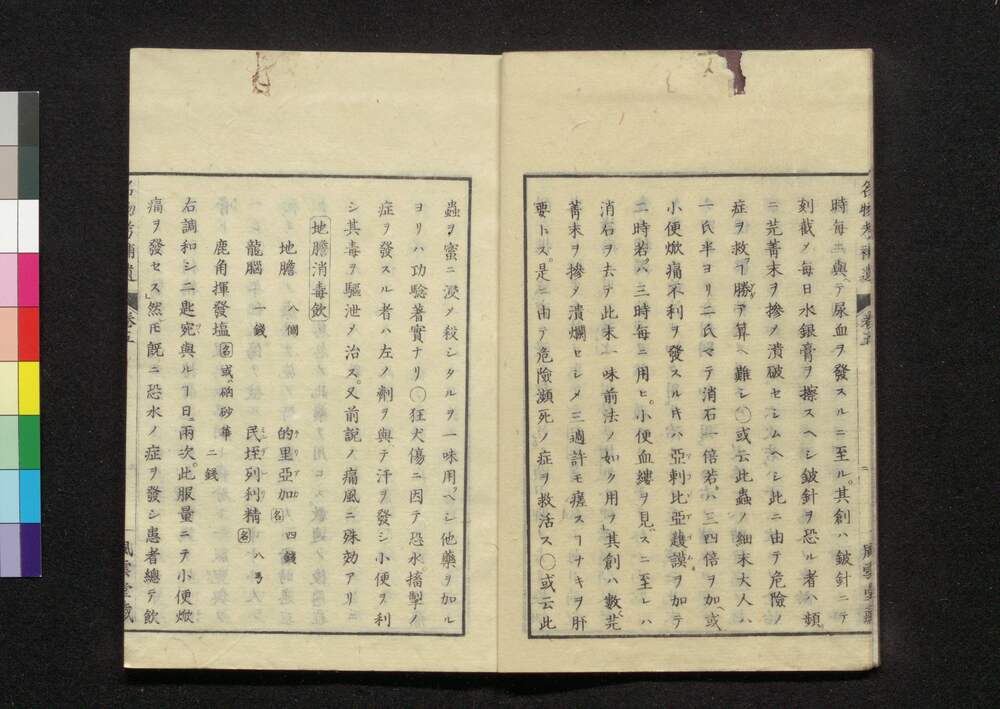 時毎ニ與ヘテ尿血ヲ發スルニ至ル。其創ハ鈹針ニテ
刻截メ毎日水銀膏ヲ擦スヘシ鈹針ヲ恐ル者ハ頻
ニ芫菁末ヲ摻メ潰破セシムヘシ此ニ由テ危險ノ
症ヲ救フヿ勝テ算ヘ難シ○或云此蟲ノ細末大人ハ
一氏半ヨリ二氏マテ消石一倍若クハ三四倍ヲ加ヘ或
小便焮痛不利ヲ發スルキハ亞剌比亞護謨ヲ加テ
二時若クハ三時毎ニ用ヒ。小便血縷ヲ見ハスニ至レハ
消石ヲ去テ此末一味前法ノ如ク用ヲ其創ハ數芫
菁末ヲ摻メ潰爛セシメ三週許モ瘥スヿナキヲ肝
要トス。是ニ由テ危險瀕死ノ症ヲ救活ス○或云此
蟲ヲ蜜ニ浸メ殺シタルヲ一味用フヘシ他藥ヲ加ル
ヨリハ功驗著實ナリ○狂犬傷ニ因テ恐水搐掣ノ
症ヲ發スル者ハ左ノ劑ヲ與テ汗ヲ發シ小便ヲ利
シ其毒ヲ驅泄メ治ス。又前說ノ痛風ニ殊効アリ
地膽消毒飲
地膽 八個 的里亞加 名 四錢
龍腦 一錢 民埀列利精 名 八弓
鹿角揮發塩 名 或ハ硇砂華 二錢
右調和シ二匙宛與ルヿ日ニ兩次。此服量ニテ小便焮
痛ヲ發セス」然モ既ニ恐水ノ症ヲ發シ患者總テ飲
名物考補遺 卷五 風雲堂藏